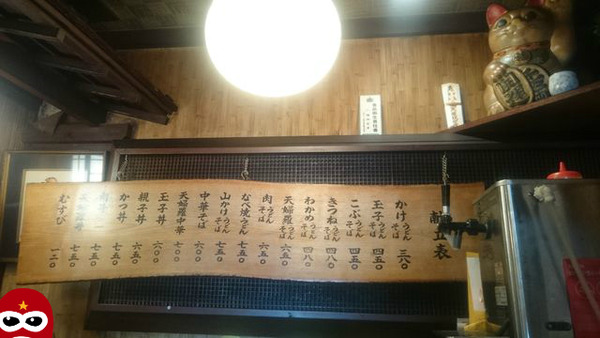 献立表
かけうどんそば 三六〇
玉子うどんそば 四五〇
こぶうどんそば 四五〇
きつねうどんそば 四八〇
わかめうどんそば 四八〇
天婦羅うどんそば 六五〇
肉うどんそば 六五〇
なべ焼うどん 七五〇
山かけうどんそば 七五〇
中華そば 六〇〇
天婦羅中華 七〇〇
玉子丼 六〇〇
親子丼 六五〇
かつ丼 七五〇
丼 七五〇
丼 七五〇
むすび 一二〇